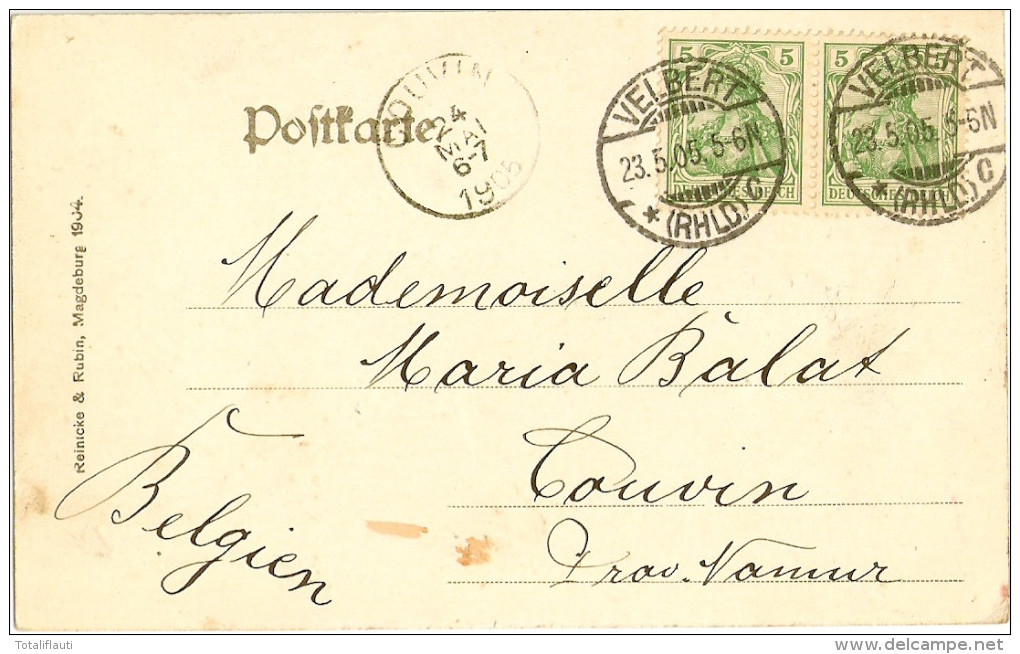 Postkarte
COUVIN
24 MAI
6-7
1905
5 5
5
DEUTSCHES REICH
VELBERT
23.5.05. 5-6N
* (RHLD) C
VELBERT
23.5.05. 5-6N
* (RHLD) C
Mademoiselle
Maria Balat
Couvin
Prov. Namur
Belgien
Reinicke & Rubin, Magdeburg 1904.
Totaliflauti
www.delcampe.net